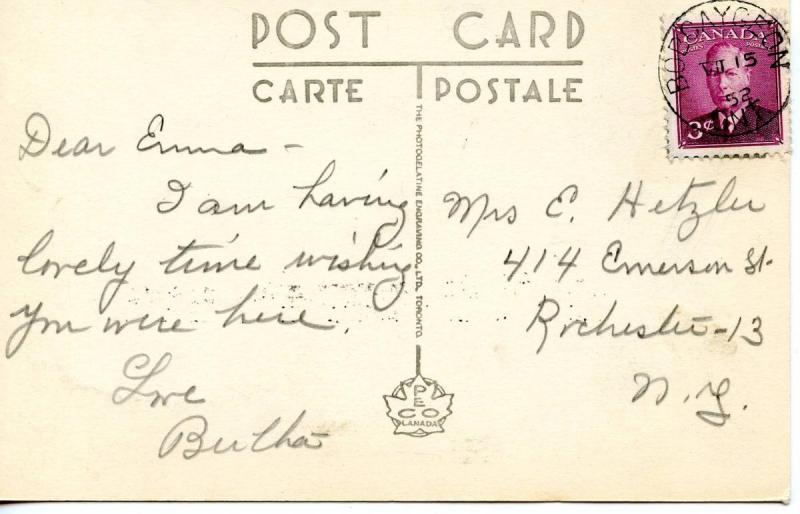 POST CARD
CARTE POSTALE
Dear Emma -
I am having
lovely time wishing
you were here.
Love
Bertha
THE PHOTOGELATINE ENGRAVING CO., LTD. TORONTO.
PECO
CANADA
BOBCAYGEON
VII 15
52
ONT
CANADA
POSTES POSTAGE
3¢
Mrs E. Hetzler
414 Emerson St.
Rochester-13
N.Y.